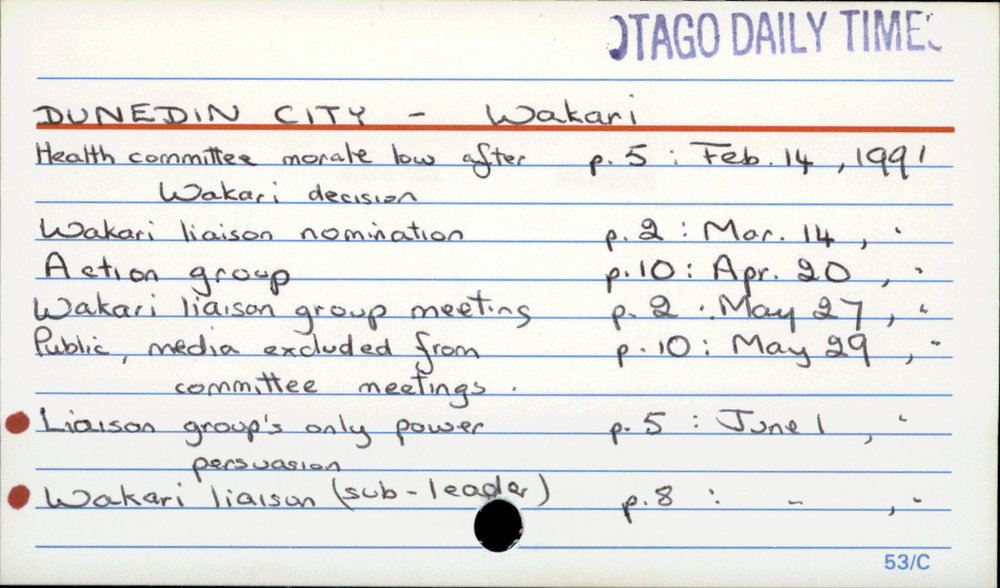 OTAGO DAILY TIMES
DUNEDIN CITY - Wakari
Health committee morale low after p. 5 : Feb. 14, 1991
Wakari decision
Wakari liaison nomination p. 2 : Mar. 14, "
Action group p. 10 : Apr. 20, "
Wakari liaison group meeting p. 2 : May 27, "
Public, media excluded from p. 10 : May 29, "
committee meetings.
Liaison group's only power p. 5 : June 1, "
persuasion
Wakari liaison (sub-leader) p. 8 : - , "
53/C